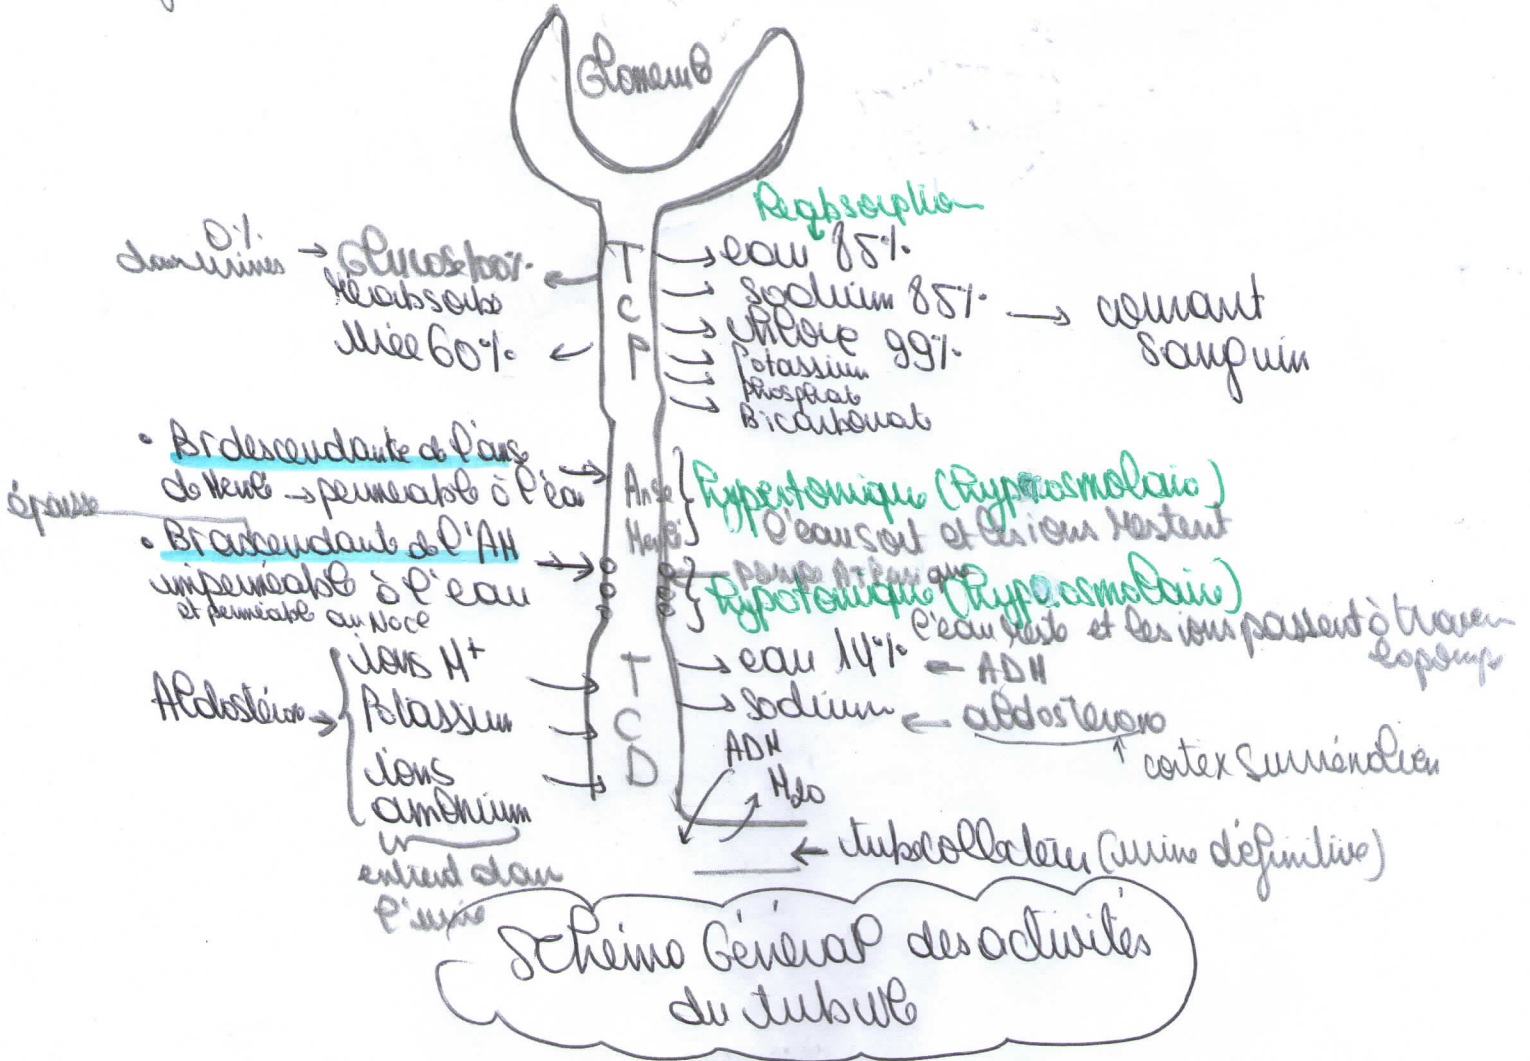 Glomerule
Reabsorption
0%
dans urines → Glucose 100%
Réabsorbé
Urée 60%
T
C
P
eau 85%
Sodium 85% → courant
sanguin
chlore 99%
Potassium
phosphat
Bicarbonat
• Br descendante de l'anse
de Henlé → perméable à l'eau
épaisse
• Br ascendante de l'AH
imperméable à l'eau
et perméable au Nacl
Anse
Henlé
hypertonique (hyperosmolaire)
l'eau sort et les ions restent
pompe ATPasique
hypotonique (hypoosmolaire)
l'eau reste et les ions passent à travers
la pompe
Aldostérone →
ions H+
Potassium
ions
amonium
entrent dans
l'urine
T
C
D
eau 14% ← ADH
Sodium ← aldosterone
cortex Surrénalien
ADH
H2O
← tube collecteur (urine définitive)
Schéma Général des activités
du tubule